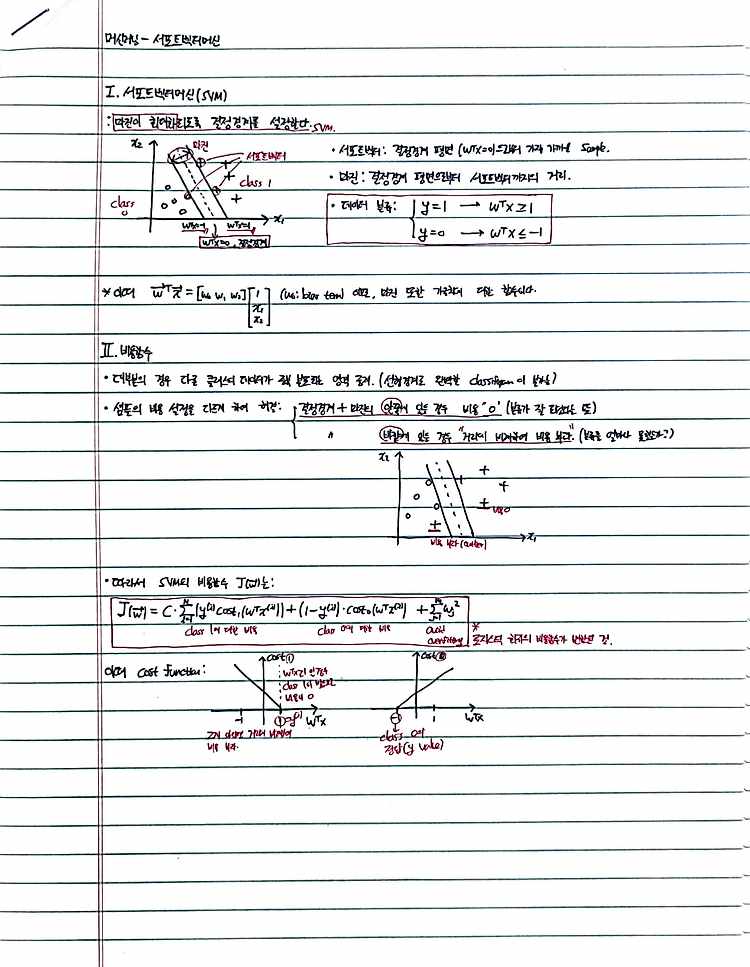 머신러닝 - 서포트벡터머신
I. 서포트벡터머신(SVM)
: 마진이 최대화되도록 결정경계를 설정한다. SVM.
x₂ 마진 서포트벡터 class 1 class 0 x₁
wᵀx=-1 wᵀx=1
wᵀx=0, 결정경계
• 서포트벡터: 결정경계 평면 (wᵀx=0)으로부터 가장 가까운 sample.
• 마진: 결정경계 평면으로부터 서포트벡터까지의 거리.
• 데이터 분류: y=1 → wᵀx≥1
y=0 → wᵀx≤-1
* 이때 w⃗ᵀx⃗ = [w₀ w₁ w₂] [1 x₁ x₂] (w₀: bias term) 이며, 마진 또한 가중치에 대한 함수이다.
II. 비용함수
• 대부분의 경우 다른 클래스의 데이터가 함께 분포하는 영역 존재. (선형경계로 완벽한 classification이 불가능)
• 샘플의 비용 설정을 다르게 하여 허용: 결정경계 + 마진의 안쪽에 있는 경우 비용 "0" (분류가 잘 되었다는 뜻)
〃 바깥에 있는 경우 "거리에 비례하여 비용 부과" (분류를 얼마나 못했는가?)
x₂ 비용 0
비용 부과 (outlier) x₁
• 따라서 SVM의 비용함수 J(w⃗)는:
J(w⃗) = C·∑ᵢ₌₁ᴺ (y⁽ⁱ⁾cost₁(wᵀx⁽ⁱ⁾)) + (1-y⁽ⁱ⁾)·cost₀(wᵀx⁽ⁱ⁾) + ∑ⱼ₌₁ᵐ wⱼ²
class 1에 대한 비용 class 0에 대한 비용 avoid overfitting
* 로지스틱 회귀의 비용함수가 변형된 것.
이때 cost function:
cost① wᵀx≥1 인 경우 class 1에 비용 0
-1 ①=y⁽ⁱ⁾ wᵀx
비용 부과.
cost⓪
-1 1 wᵀx
class 0의 정답(y value)